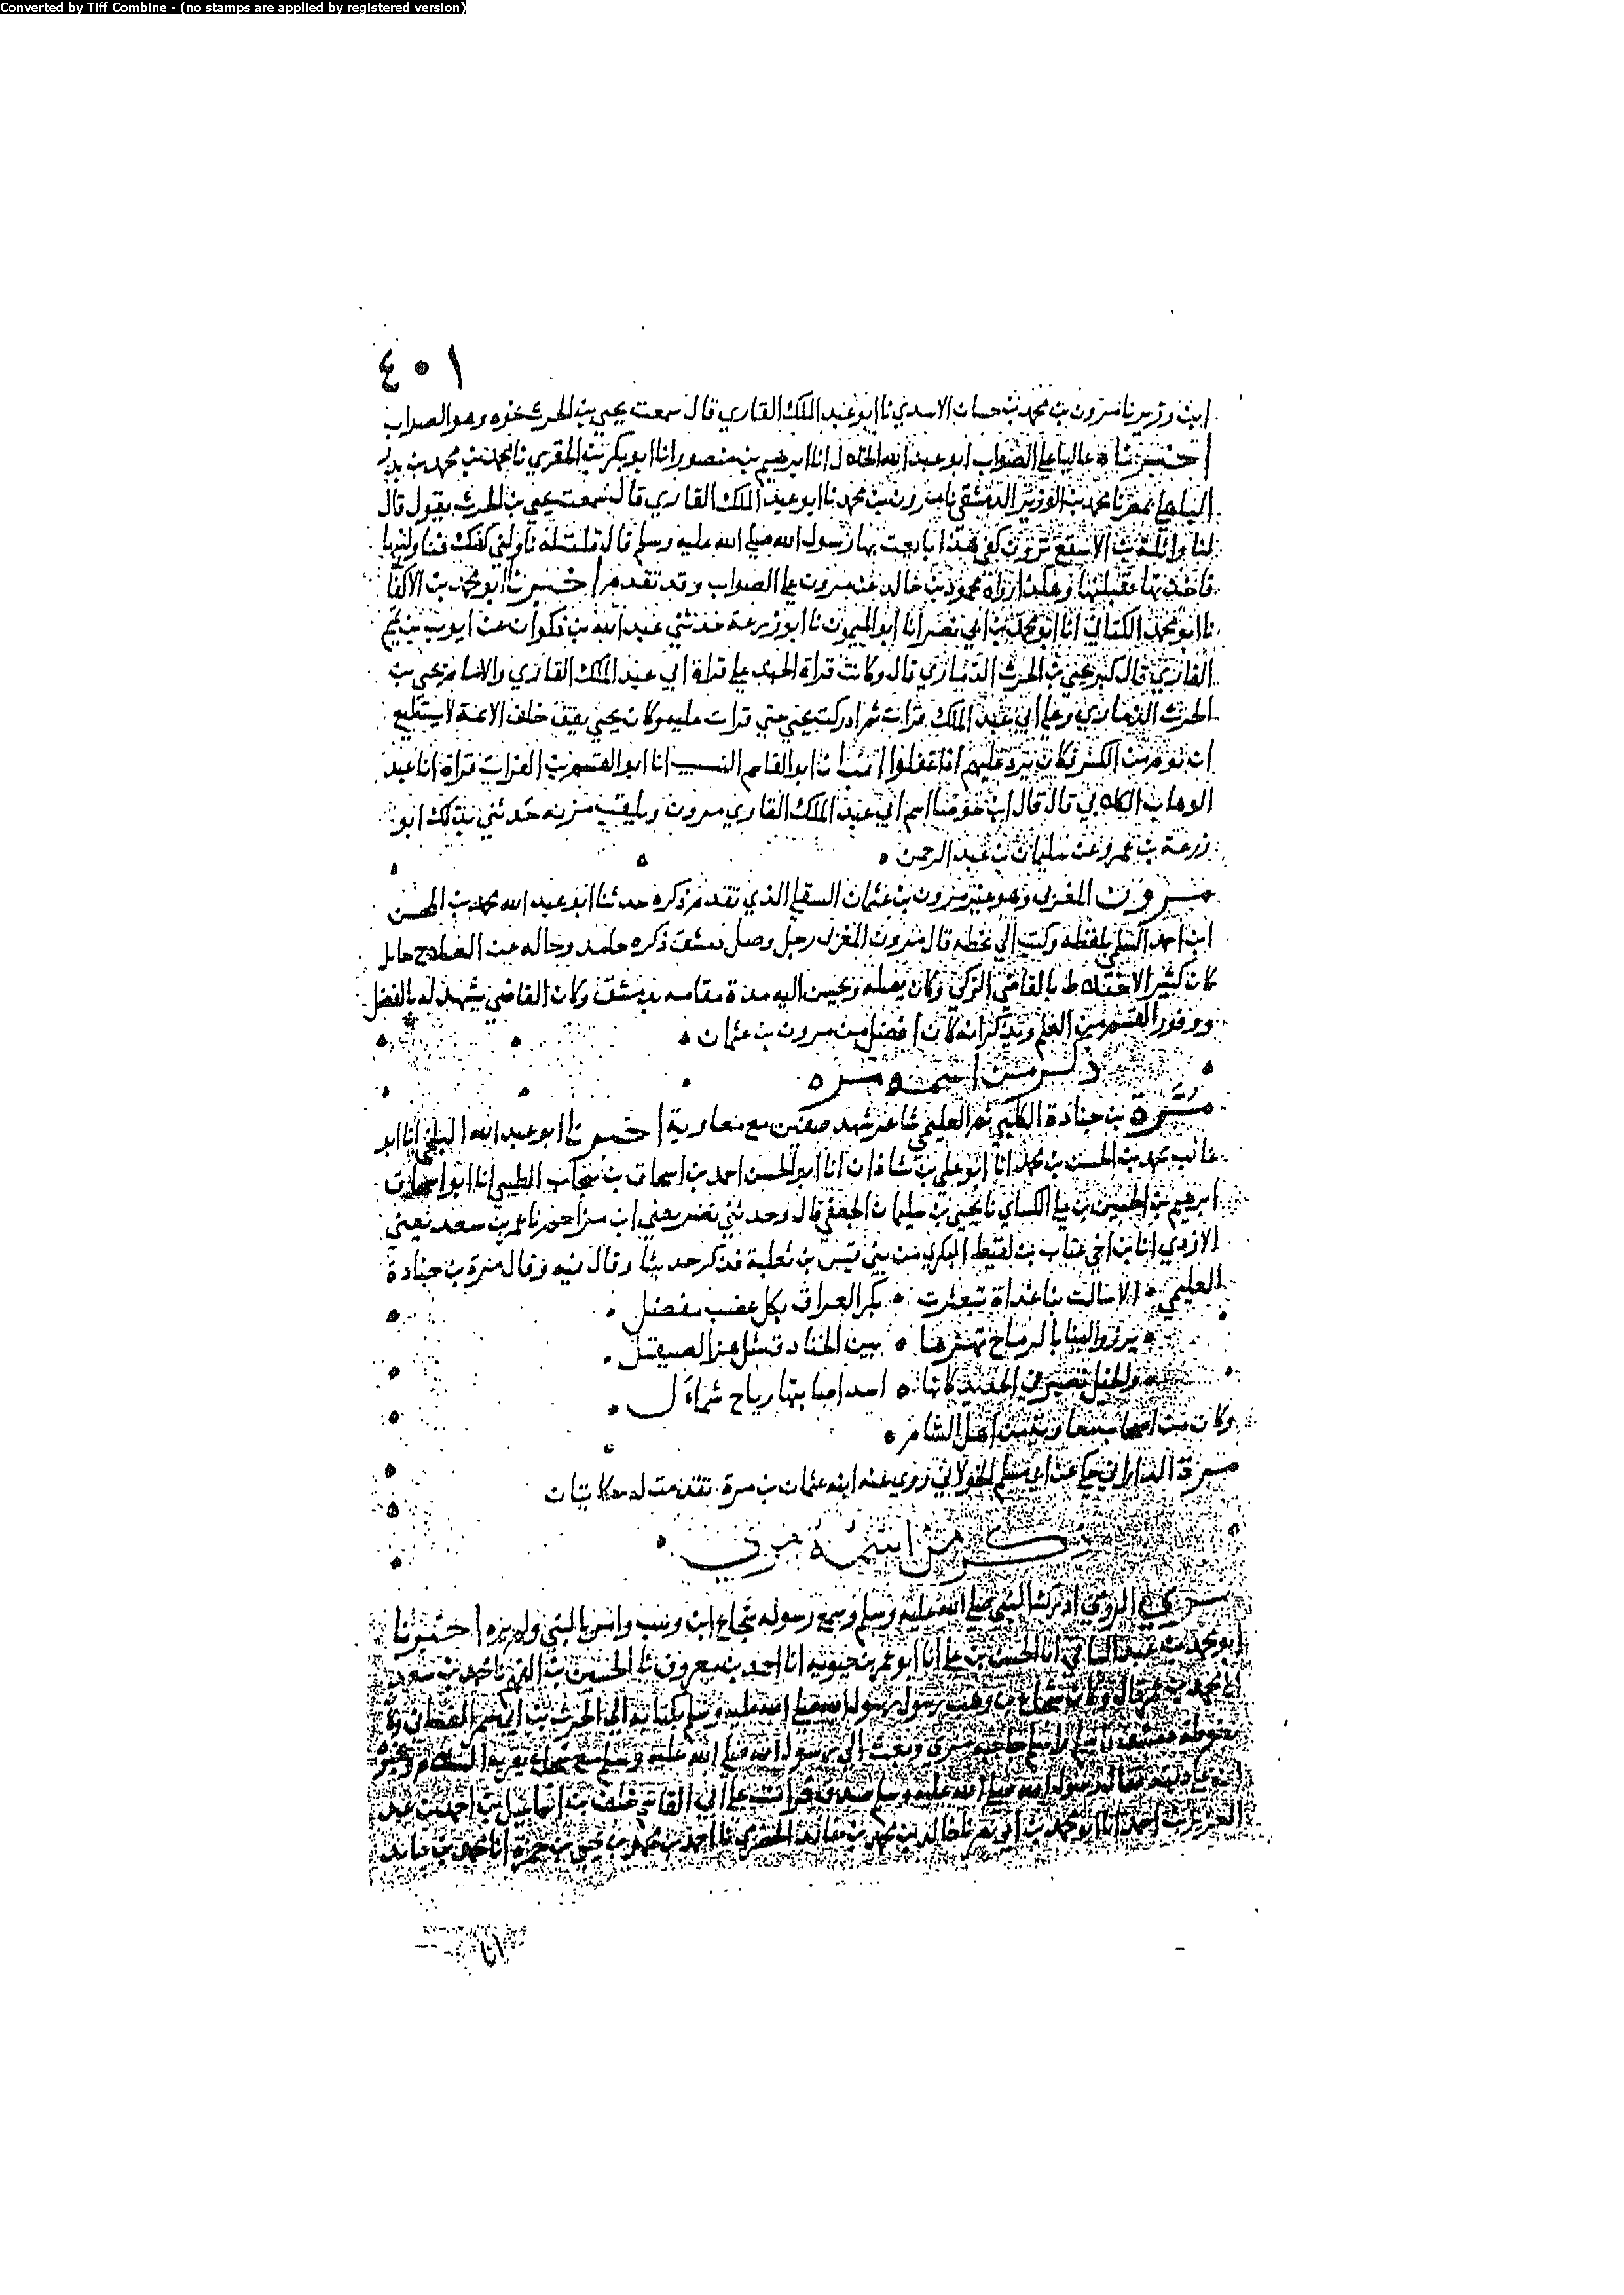 Converted by Tiff Combine - (no stamps are applied by registered version)
٤٠١
ابن وزير نا مرون بن محمد بن حسان الاسدي نا ابو عبد الملك القاري قال سمعت يحيى بن الحرث نحوه وهو الصواب
اخبرناه عاليا على الصواب ابو عبد الله الخلال انا ابرهيم بن منصور انا ابو بكر بن المقري نا محمد بن محمد بن بدر
الباهلي بمصر نا محمد بن الوزير الدمشقي نا مرون بن محمد نا ابو عبد الملك القاري قال سمعت يحيى بن الحرث يقول قال
لنا واثلة بن الاسقع ترون كفي هذه بايعت بها رسول الله صلى الله عليه وسلم قال قلت له ناولني كفك فناولنيها
فاخذتها فقبلتها وهكذا رواه محمود بن خالد عن مرون على الصواب وقد تقدم اخبرنا ابو محمد بن الاكفا
نا ابو محمد الكتاني انا ابو محمد بن ابي نصر انا ابو الميمون نا ابو زرعة حدثني عبد الله بن ذكوان عن ايوب بن تميم
القاري قال كبر يحيى بن الحرث الذماري قال وكانت قراة الجند على قراة ابي عبد الملك القاري والامام يحيى بن
الحرث الذماري وعلى ابي عبد الملك قرات ثم ادركت يحيى حتى قرات عليه وكان يحيى يقف خلف الائمة لا يستطيع
ان يؤم من الكبر فكان يرد عليهم اذا غفلوا انبانا ابو القاسم النسيب انا ابو القسم بن الفرات قراة انا عبد
الوهاب الكلابي قال قال ابن جوصا اسم ابي عبد الملك القاري مرون ويلقب مزنه حدثني بذلك ابو
زرعة بن عمرو عن سليمان بن عبد الرحمن
مرون المغربي وهو غير مرون بن عثمان السقلي الذي تقدم ذكره حدثنا ابو عبد الله محمد بن المحسن
ابن احمد السلمي بلفظه وكتب الي بخطه قال مرون المغربي رجل وصل دمشق ذكره حامد وحاله من الصلاح حايل
كان كثير الاختلاط بالقاضي الزكي وكان يصله ويحسن اليه مدة مقامه بدمشق وكان القاضي يشهد له بالفضل
ووفور القسم من العلم ويذكر انه كان افضل من مرون بن عثمان
ذكر من اسمه مرة
مُرَّة بن جنادة الكلبي ثم العليمي شاعر شهد صفين مع معاوية اخبرنا ابو عبد الله البلخي انا ابو
غالب محمد بن الحسن بن محمد انا ابو علي بن شاذان انا ابو الحسن احمد بن اسحاق بن نيخاب الطيبي انا ابو اسحاق
ابرهيم بن الحسين بن علي الكساي نا يحيى بن سليمان الجعفي قال وحدثني نصر يعني ابن مزاحم نا عمر بن سعد يعني
الازدي انا ابن اخي عتاب بن لقيط البكري من بني قيس بن ثعلبة فذكر حديثا وقال فيه وقال مرة بن جنادة
العليمي الا سالت بنا غداة تبعثرت بكر العراق بكل عضب مفصل
برزوا الينا بالرماح تهزها بين الخنادق مثل هز الصيقل
والخيل تضبر في الحديد كانها اسد اصابتها رياح شماءل
وكان من اصحاب معاوية من اهل الشام
مرة الداراني حكى عن ابي مسلم الخولاني روى عنه ابنه عثمان بن مرة تقدمت له حكايتان
ذكر من اسمه مري
مري الرومي ادرك النبي صلى الله عليه وسلم وسمع رسوله شجاع ابن وهب وامن بالنبي ولم يره اخبرنا
ابو محمد بن عبد الباقي انا الحسن بن علي انا ابو عمر بن حيويه انا احمد بن معروف نا الحسين بن الفهم نا محمد بن سعد
انا محمد بن عمر قال وكان شجاع بن وهب رسول رسول الله صلى الله عليه وسلم بكتابه الى الحرث بن ابي شمر الغساني وكا
بغوطة دمشق فاسلم حاجبه مري وبعث الى رسول الله صلى الله عليه وسلم مع شجاع يقريه السلام ويخبره
انه على دينه فقال رسول الله صلى الله عليه وسلم صدق قرات على ابي القاسم خلف بن اسماعيل بن احمد بن عبد
العزيز بن احمد انا ابو محمد بن ابو نصر خالد بن محمد بن خالد الحضرمي نا احمد بن محمد بن يحيى بن حمزة انا محمد بن عايد
انا